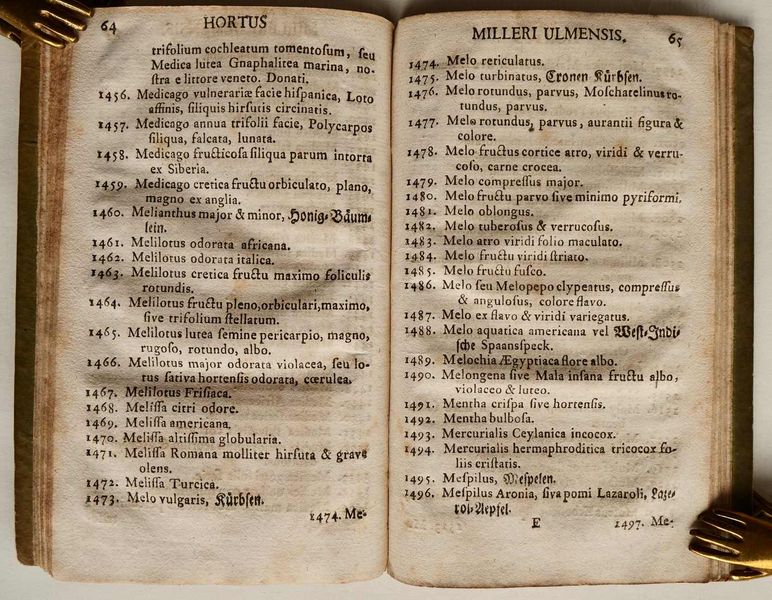 64 HORTUS
trifolium cochleatum tomentoſum, ſeu
Medica lutea Gnaphalitea marina, no-
ſtra e littore veneto. Donati.
1456. Medicago vulnerariæ facie hiſpanica, Loto
affinis, ſiliquis hirſutis circinatis.
1457. Medicago annua trifolii facie, Polycarpos
ſiliqua, falcata, lunata.
1458. Medicago fructicoſa ſiliqua parum intorta
ex Siberia.
1459. Medicago cretica fructu orbiculato, plano,
magno ex anglia.
1460. Melianthus major & minor, Honig-Bäum-
lein.
1461. Melilotus odorata africana.
1462. Melilotus odorata italica.
1463. Melilotus cretica fructu maximo foliculis
rotundis.
1464. Melilotus fructu pleno, orbiculari, maximo,
ſive trifolium ſtellatum.
1465. Melilotus lutea ſemine pericarpio, magno,
rugoſo, rotundo, albo.
1466. Melilotus major odorata violacea, ſeu lo-
tus ſativa hortenſis odorata, cœrulea.
1467. Melilotus Friſiaca.
1468. Meliſſa citri odore.
1469. Meliſſa americana.
1470. Meliſſa altiſſima globularia.
1471. Meliſſa Romana molliter hirſuta & grave
olens.
1472. Meliſſa Turcica.
1473. Melo vulgaris, Kürbſen.
1474. Me-
MILLERI ULMENSIS. 65
1474. Melo reticulatus.
1475. Melo turbinatus, Cronen Kürbſen.
1476. Melo rotundus, parvus, Moſchatelinus ro-
tundus, parvus.
1477. Melo rotundus, parvus, aurantii figura &
colore.
1478. Melo fructus cortice atro, viridi & verru-
coſo, carne crocea.
1479. Melo compreſſus major.
1480. Melo fructu parvo ſive minimo pyriformi.
1481. Melo oblongus.
1482. Melo tuberoſus & verrucoſus.
1483. Melo atro viridi folio maculato.
1484. Melo fructu viridi ſtriato.
1485. Melo fructu fuſco.
1486. Melo ſeu Melopepo clypeatus, compreſſus
& anguloſus, colore flavo.
1487. Melo ex flavo & viridi variegatus.
1488. Melo aquatica americana vel Weſt-Indi-
ſche Spaansſpeck.
1489. Melochia Ægyptiaca flore albo.
1490. Melongena ſive Mala inſana fructu albo,
violaceo & luteo.
1491. Mentha criſpa ſive hortenſis.
1492. Mentha bulboſa.
1493. Mercurialis Ceylanica incocox.
1494. Mercurialis hermaphroditica tricocox fo-
liis criſtatis.
1495. Meſpilus, Meſpelen.
1496. Meſpilus Aronia, ſiva pomi Lazaroli, Laze-
rol-Aepfel.
E 1497. Me-